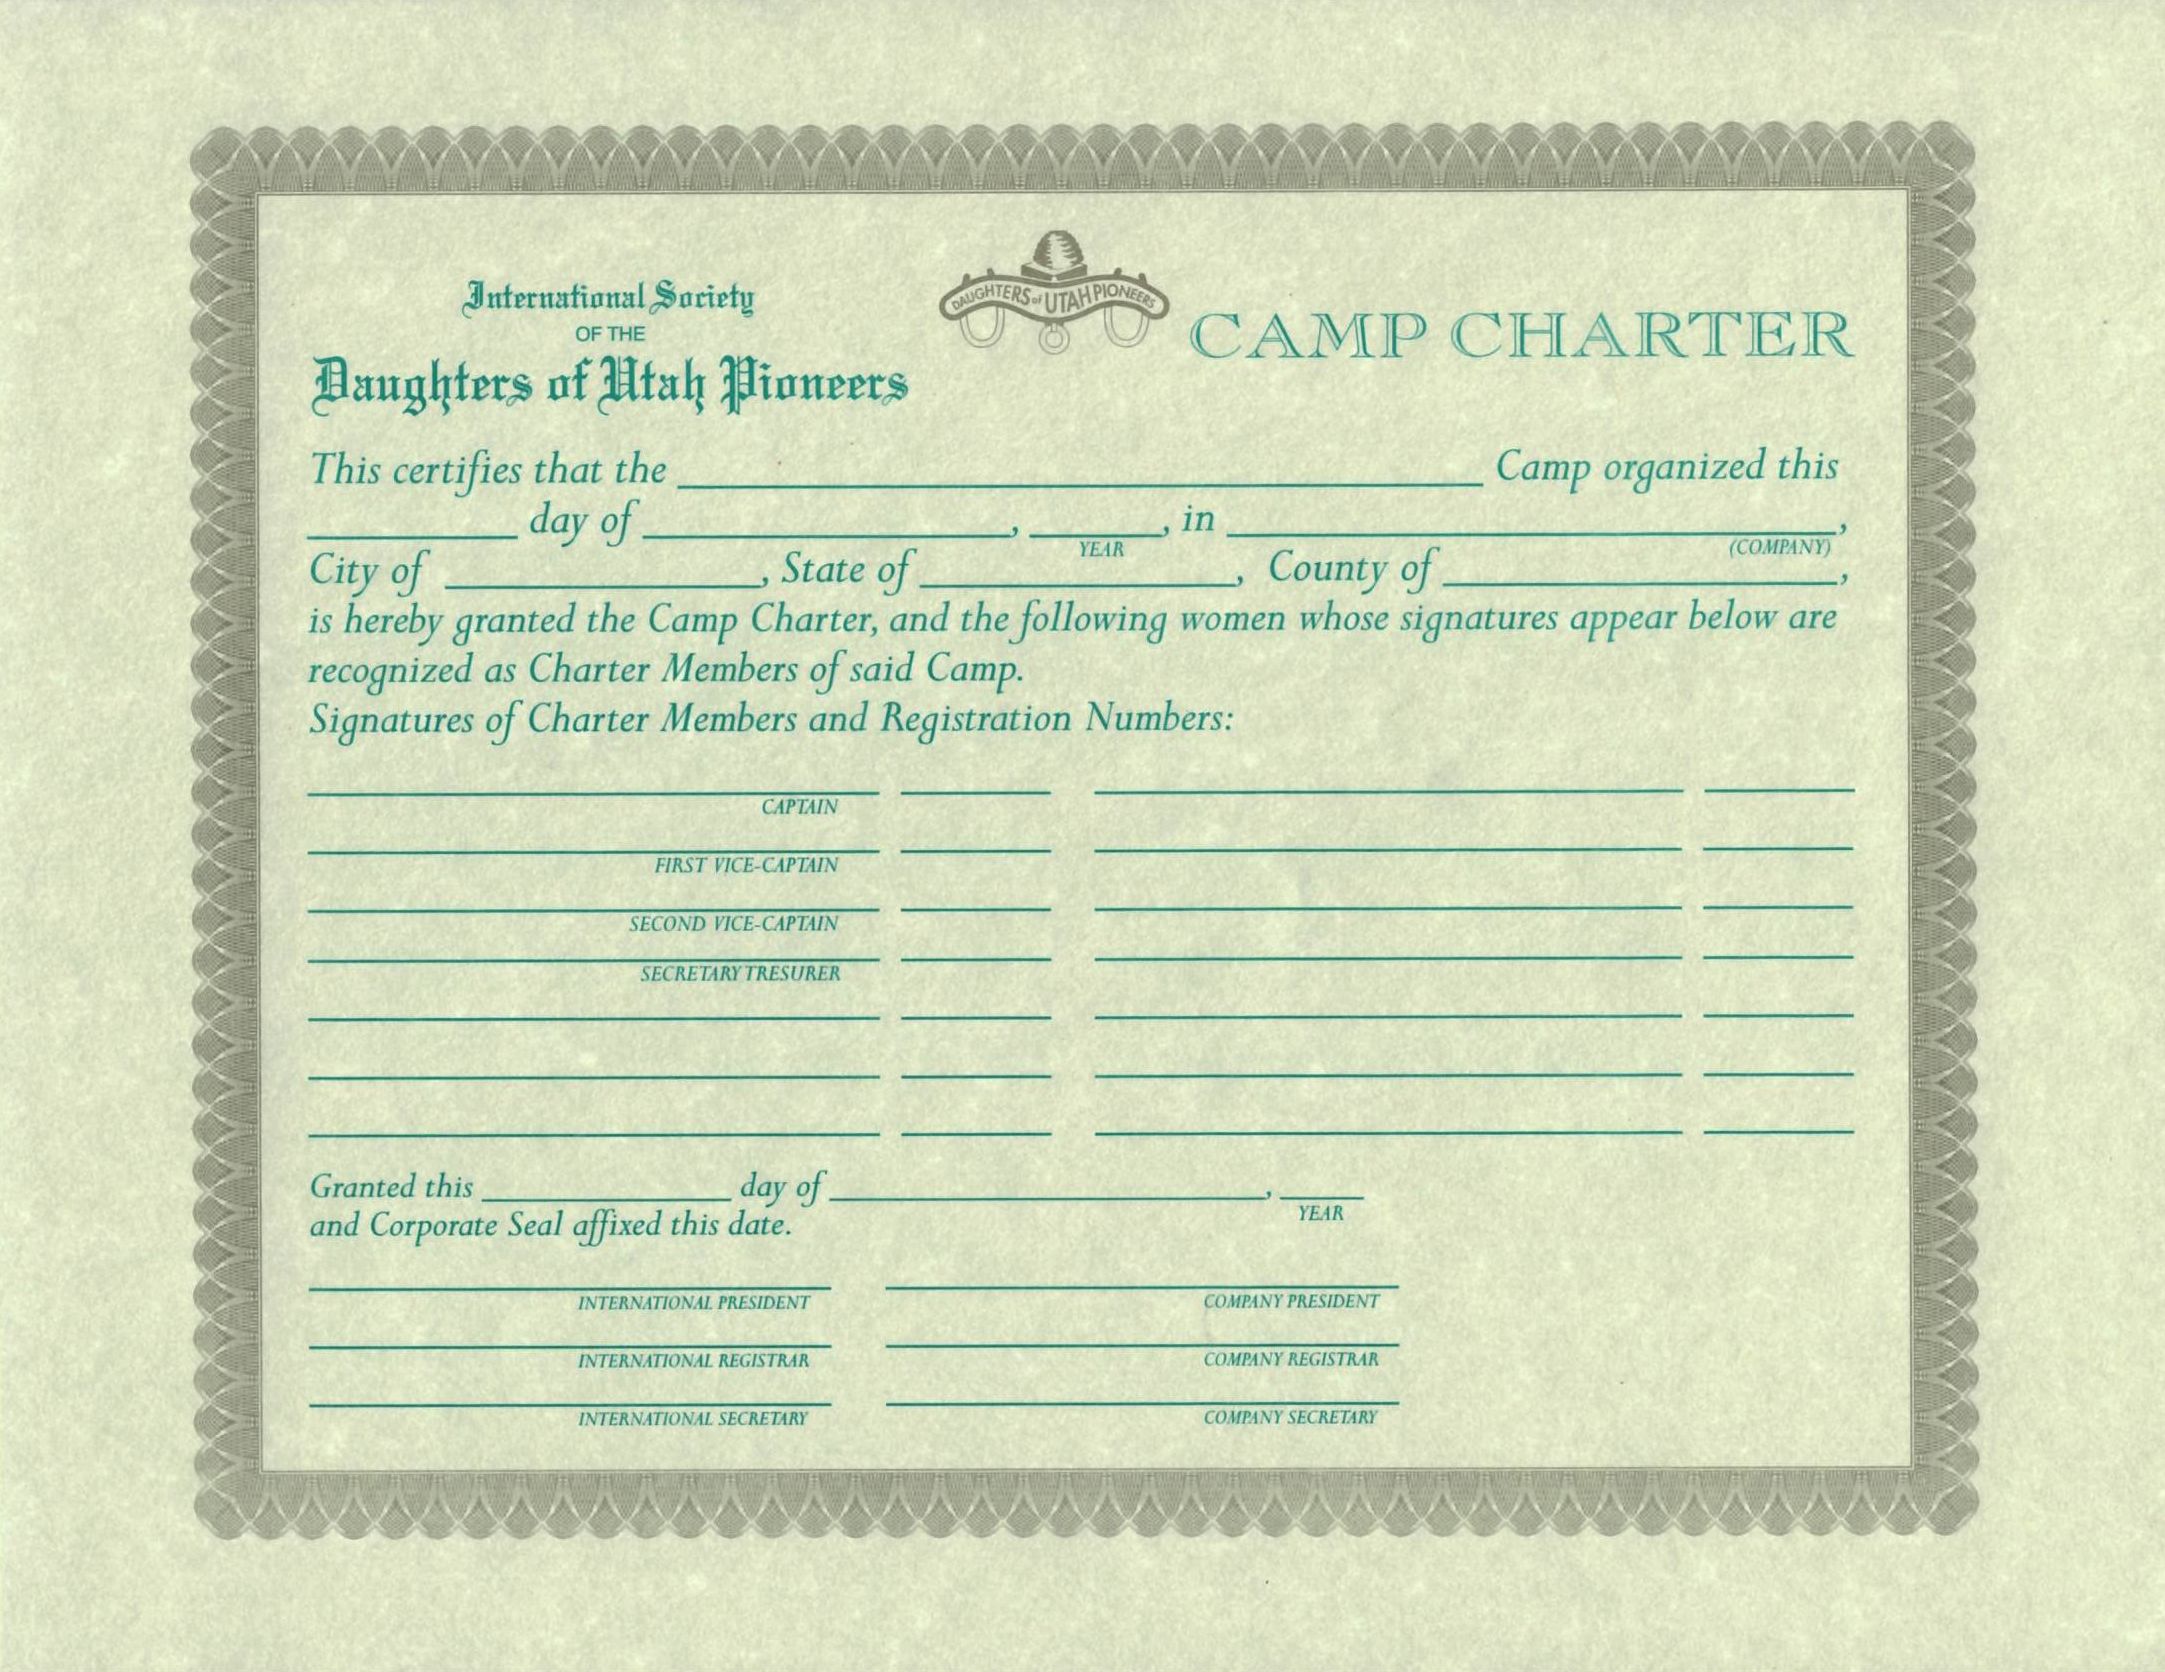 International Society
OF THE
Daughters of Utah Pioneers
DAUGHTERS of UTAH PIONEERS
CAMP CHARTER
This certifies that the ____ Camp organized this
____ day of ____, ____, in ____,
YEAR (COMPANY)
City of ____, State of ____, County of ____,
is hereby granted the Camp Charter, and the following women whose signatures appear below are
recognized as Charter Members of said Camp.
Signatures of Charter Members and Registration Numbers:
CAPTAIN
FIRST VICE-CAPTAIN
SECOND VICE-CAPTAIN
SECRETARY TRESURER
Granted this ____ day of ____, ____
YEAR
and Corporate Seal affixed this date.
INTERNATIONAL PRESIDENT COMPANY PRESIDENT
INTERNATIONAL REGISTRAR COMPANY REGISTRAR
INTERNATIONAL SECRETARY COMPANY SECRETARY